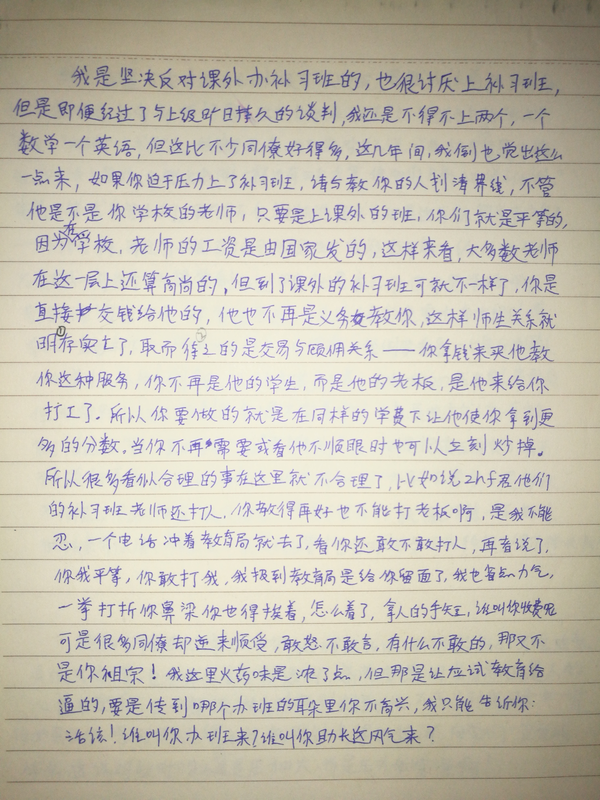 我是坚决反对课外办补习班的，也很讨厌上补习班，
但是即便经过了与上级旷日持久的谈判，我还是不得不上两个，一个
数学一个英语，但这比不少同僚好得多，这几年间，我倒也觉出这么
一点来，如果你迫于压力上了补习班，请与教你的人划清界线，不管
他是不是你学校的老师，只要是上课外的班，你们就是平等的，
因为在学校，老师的工资是由国家发的，这样来看，大多数老师
在这一层上还算高尚的，但到了课外的补习班可就不一样了，你是
直接交钱给他的，他也不再是义务教你，这样师生关系就
明存实亡了，取而待之的是交易与顾佣关系——你拿钱来买他教
你这种服务，你不再是他的学生，而是他的老板，是他来给你
打工了。所以你要做的就是在同样的学费下让他使你拿到更
多的分数。当你不再需要或看他不顺眼时也可以立刻炒掉。
所以很多看似合理的事在这里就不合理了，比如说zhf及他们
的补习班老师还打人，你教得再好也不能打老板啊，是我不能
忍，一个电话冲着教育局就去了，看你还敢不敢打人，再者说了，
你我平等，你敢打我，我报到教育局是给你留面了，我也省点力气，
一拳打折你鼻梁你也得挨着，怎么着了，拿人的手短，谁叫你收费呢
可是很多同僚却逆来顺受，敢怒不敢言，有什么不敢的，那又不
是你祖宗！我这里火药味是浓了点，但那是让应试教育给
逼的，要是传到哪个办班的耳朵里你不高兴，我只能告诉你：
活该！谁叫你办班来？谁叫你助长这风气来？